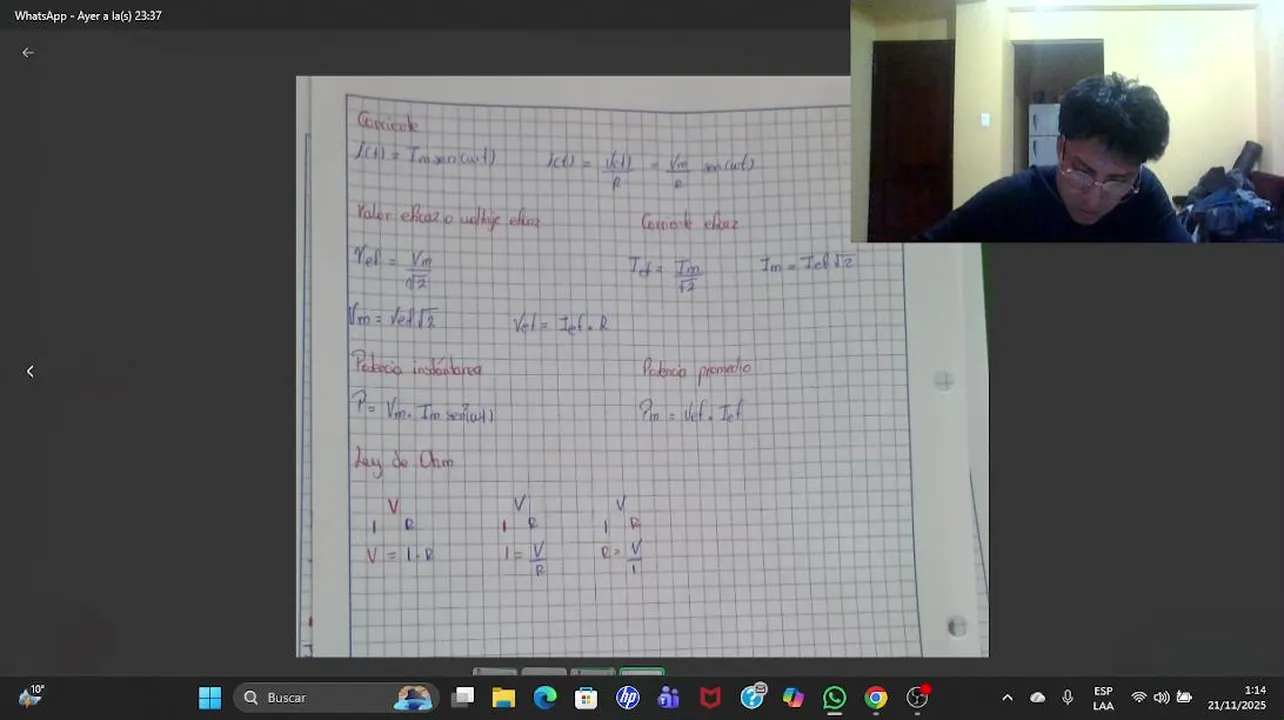 WhatsApp - Ayer a la(s) 23:37
Corriente
i(t) = Im sen(wt)    i(t) = V(t)/R = Vm/R sen(wt)
Valor eficaz o voltaje eficaz    Corriente eficaz
Vef = Vm/√2    Ief = Im/√2    Im = Ief √2
Vm = Vef √2    Vef = Ief . R
Potencia instántanea    Potencia promedio
P = Vm . Im sen²(wt)    Pm = Vef . Ief
Ley de Ohm
V    V    V
I R    I R    I R
V = I . R    I = V/R    R = V/I
10°
Buscar
ESP
LAA
1:14
21/11/2025